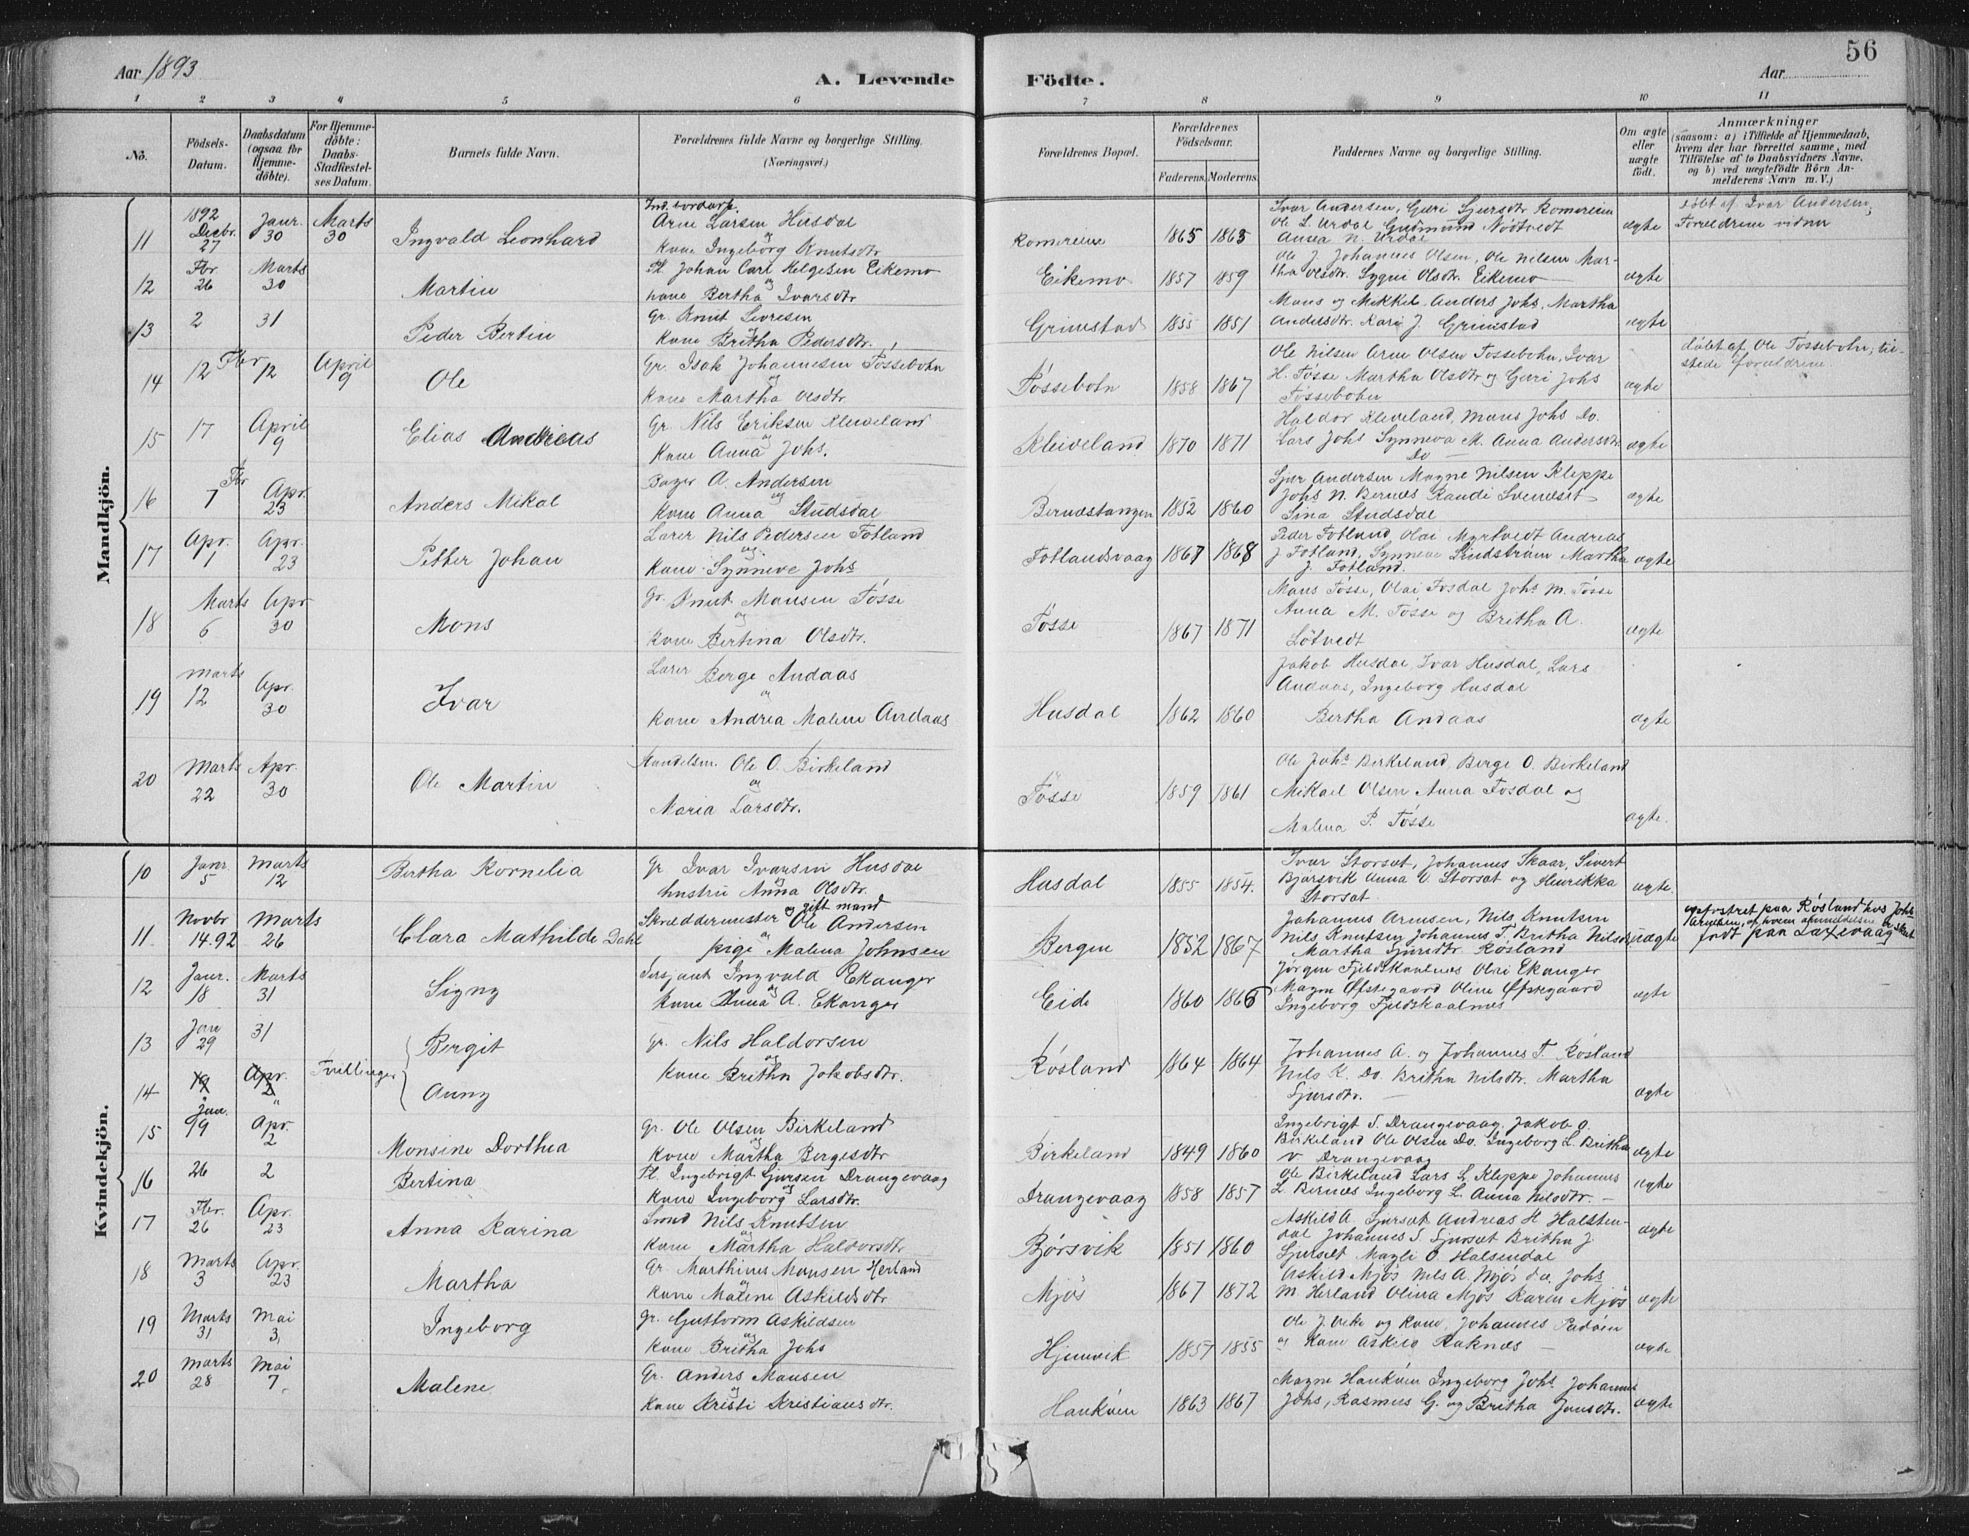 Aar 1893
A. Levende Födte.
Aar
56
1 2 3 4 5 6 7 8 9 10 11
No.
Födsels-Datum.
Daabsdatum (ogsaa for Hjemme-döbte).
For Hjemme-döbte: Daabs-Stadfæstel-ses Datum.
Barnets fulde Navn.
Forældrenes fulde Navne og borgerlige Stilling. (Næringsvei.)
Forældrenes Bopæl.
Forældrenes Födselsaar.
Faderens. Moderens.
Faddernes Navne og borgerlige Stilling.
Om ægte eller uægte födt.
Anmærkninger (saasom: a) i Tilfælde af Hjemmedaab, hvem der har forrettet samme, med Tilföielse af to Daabsvidners Navne, og b) ved uægtefödte Börn An-melderens Navn m. V.)
Mandkjön.
11 1892 Decbr. 27 Janr. 30 Marts 30 Ingvald Leonhard
Arne Larsen Husdal
og
Kone Ingeborg Knutsdtr.
Romereim 1865 1865
Ivar Andersen, Guri Sjursdtr. Romereim
Ole L. Urdal Gudmund Nödtvedt
Anna N. Urdal
ægte
döbt af Ivar Andersen;
Foreldrene vidner
12 Fbr. 26 Marts 30 Martin
Pl. Johan Carl Helgesen Eikemo
og
kone Bertha Ivarsdtr
Eikemo 1857 1859
Ole J. Johannes Olsen, Ole Nilsen Mar-
tha Olsdtr. Sygni Olsdtr. Eikemo
ægte
13 2 31 Peder Bertin
Gr. Knut Sivresen
og
Kone Britha Pedersdtr.
Grimstad 1855 1851
Mons og Mikkel Anders Johs. Martha
Andersdtr. Kari J. Grimstad
ægte
14 12 Fbr 12 April 9 Ole
Gr. Isak Johannesen Tössebotn
og
Kone Martha Olsdtr.
Tössebotn 1858 1867
Ole Nilsen Arne Olsen Tossebotn, Ivar
H. Tösse Martha Olsdtr og Guri Johs
Tössebotn
ægte
döbt af Ole Tössebotn, til-
stede foreldrene.
15 17 April 9 Elias Andreas
Gr. Nils Eriksen Kleiveland
og
Kone Anna Johs.
Kleiveland 1870 1871
Haldor Kleiveland, Mons Johs Do.
Lars Johs Synneva M. Anna Andersdtr
Do
ægte
16 Fbr 7 Apr. 23 Anders Mikal
Bager A. Andersen
og
Kone Anna Studsdal
Bernæstangen 1852 1860
Sjur Andersen Magne Nilsen Kleppe
Johs N. Bernæs Randi Svenæset
Sina Studsdal
ægte
17 Apr. 1 Apr. 23 Petter Johan
Lærer Nils Pedersen Fotland
og
Kone Synneve Johs
Fotlandsvaag 1867 1868
Peder Fotland, Olai Myrtvedt Andreas
J. Fotland, Synneve Lindström Martha
J. Fotland.
ægte
18 Marts 6 Apr 30 Mons
Gr. Knut Monsen Tösse
og
Kone Bertina Olsdtr.
Tösse 1867 1871
Mons Tösse, Olai Fosdal Johs M. Tösse
Anna M. Tosse og Britha A.
Lötvedt
ægte
19 Marts 12 Apr. 30 Ivar
Lærer Berge Andaas
og
Kone Andrea Malene Andaas
Husdal 1862 1860
Jakob Husdal, Ivar Husdal, Lars
Andaas, Ingeborg Husdal
Bertha Andaas
ægte
20 Marts 22 Apr. 30 Ole Martin
Handelsm. Ole O. Birkeland
og
Maria Larsdtr.
Tösse 1859 1861
Ole Johs Birkeland, Berge O. Birkeland
Mikael Olsen Anna Fosdal og
Malena P. Tösse
ægte.
Kvindekjön.
10 Janr 5 Marts 12 Bertha Kornelia
Gr Ivar Ivarsen Husdal
og
hustru Anna Olsdtr.
Husdal 1855 1854.
Ivar Storset, Johannes Skaar, Sivert
Bjorsvik Anna O Storsæt og Henrikka
Storsæt
ægte
11 Novbr 14.92 Marts 26 Clara Mathilde Dahl
Skræddermester og gift mand Ole Andersen
og
pige Malena Johnsen
Bergen 1852 1867
Johannes Arnesen, Nils Knutsen
Nils Knutsen Johannes T. Britha Nilsdtr
Martha Sjursdtr. Rösland
uægte
opfostret paa Rösland hos Johs
födt paa Laxevaag
12 Janr. 18 Marts 31 Signy
Sersjant Ingvald Ekanger
og
Kone Anna A. Ekanger
Eide 1860 1866
Jörgen Fjeldskaalnes Olai Ekanger
Magne Öfstegaard Oline Öfstegaard
Ingeborg Fjeldskaalnæs
ægte
13 Jan 29 31 Bergit
Gr. Nils Haldorsen
og
Kone Britha Jakobsdtr.
Rösland 1864 1864
Johannes A. og Johannes T. Rösland
Nils K. Do. Britha Nilsdtr. Martha
Sjursdtr.
ægte
14 Apr. 2 Tvillinger Anny
15 Jan. 19 Apr. 2 Monsine Dorthea
Gr. Ole Olsen Birkeland
og
Kone Martha Bergesdtr
Birkeland 1849 1860
Ingebrigt S. Drangevaag. Jakob O.
Birkeland Ole Olsen Do. Ingeborg L. Britha
Drangevaag
ægte
16 26 2 Bertina
Pl. Ingebrigt Sjursen Drangevaag
og
Kone Ingeborg Larsdtr.
Drangevaag 1858 1857
Ole Birkeland Lars L. Kleppe Johannes
L. Bernæs Ingeborg L. Anna Nilsdtr.
ægte
17 Fbr. 26 Apr. 23 Anna Karina
Smed Nils Knutsen
og
Kone Martha Haldorsdtr
Bjørsvik 1851 1860
Askild A. Sjursæt Andreas H Halsten-
dal Johannes S Sjursæt Britha J.
Sjursæt Magli O Halsendal
ægte
18 Marts 3 Apr. 23 Martha
Gr. Marthines Monsen Herland
og
Kone Malene Askildsdtr
Mjös 1867 1872
Askild Mjös Nils A. Mjös Johs
M. Herland Olina Mjös Karen Mjös
ægte
19 Marts 31 Mai 3 Ingeborg
gr. Guttorm Askildsen
og
Kone Britha Johs
Hjemvik 1857 1855
Ole J. Veke og Kone, Johannes Padöen
og Kone Askild Raknæs
ægte
20 Marts 28 Mai 7 Malene
Gr. Anders Monsen
og
Kone Kristi Kristiansdtr.
Haukúm 1863 1867
Magne Haukúm Ingeborg Johs. Johannes
Johs, Rasmus G. og Britha Jonsdtr.
ægte